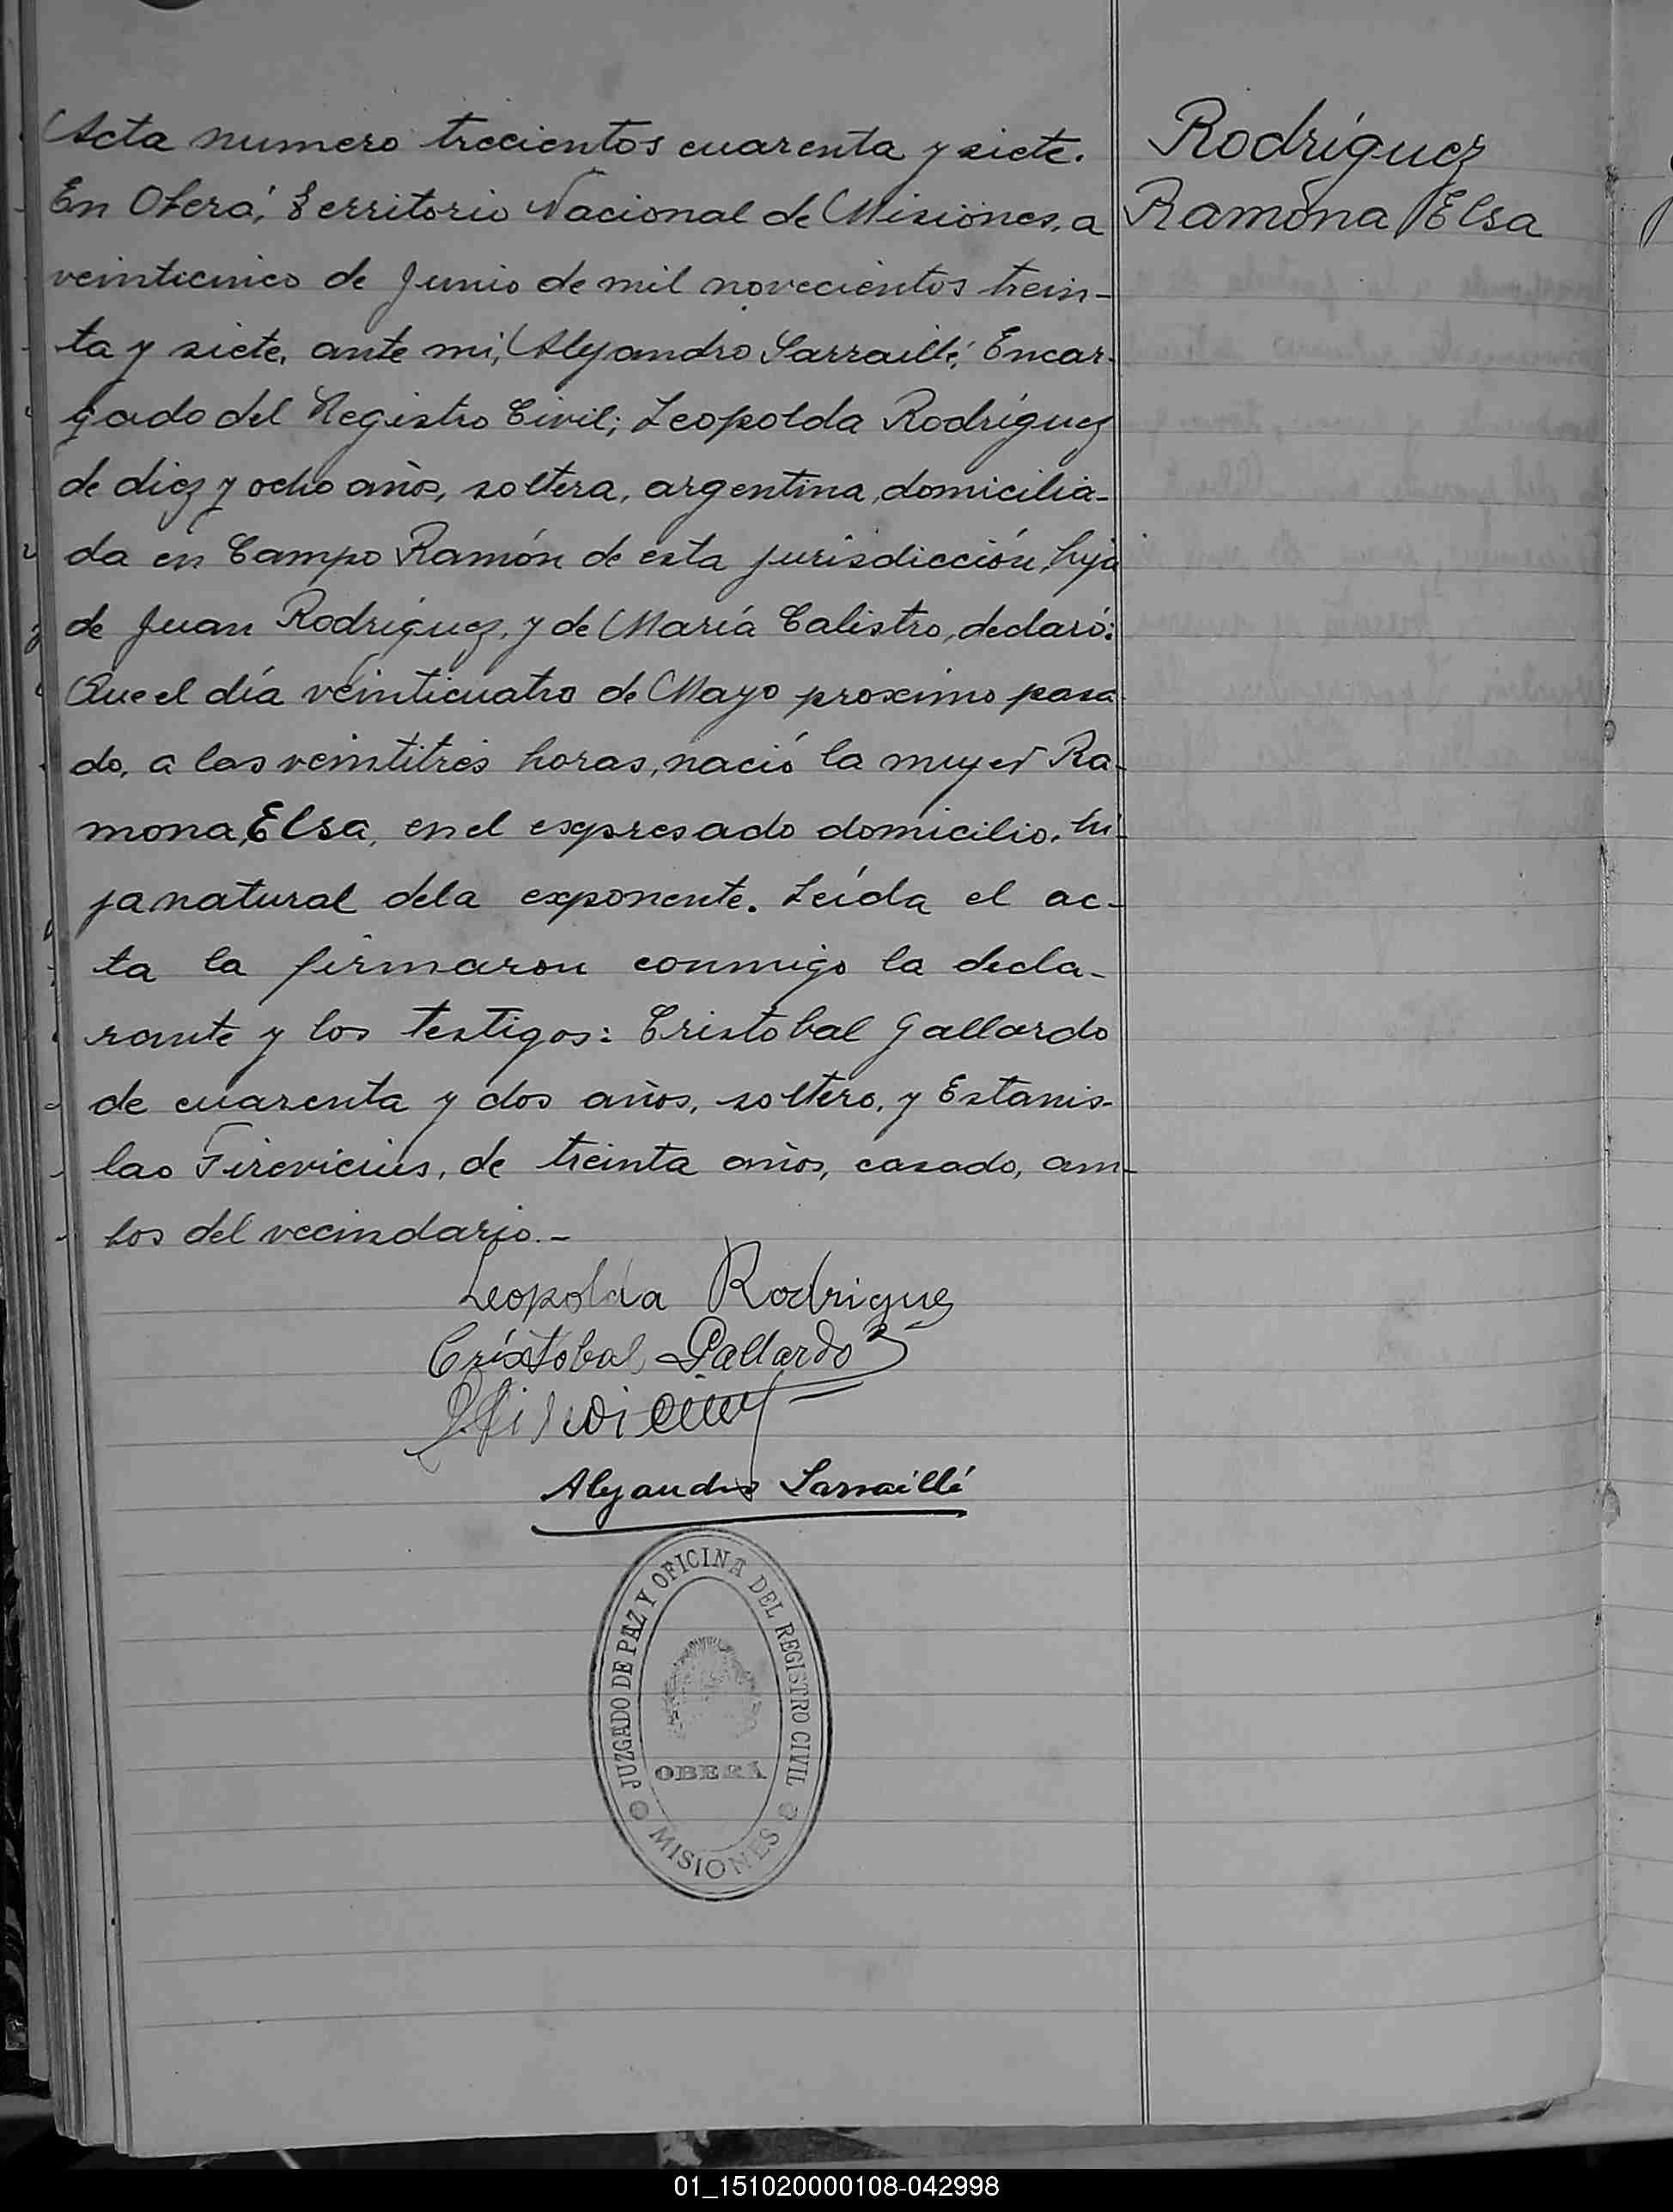 Acta numero trecientos cuarenta y siete.
En Oberá, Territorio Nacional de Misiones, a
veinticinco de Junio de mil novecientos trein-
ta y siete, ante mi, Alejandro Sarraillé, Encar-
gado del Registro Civil; Leopolda Rodríguez
de diez y ocho años, soltera, argentina, domicilia-
da en Campo Ramón de esta jurisdicción, hija
de Juan Rodríguez, y de María Calistro, declaró:
Que el día veinticuatro de Mayo proximo pasa-
do, a las veintitrés horas, nació la mujer Ra-
mona, Elsa, en el expresado domicilio, hi-
ja natural de la exponente. Leída el ac-
ta la firmaron conmigo la decla-
rante y los testigos: Cristobal Gallardo
de cuarenta y dos años, soltero, y Estanis-
lao Firevicius, de treinta años, casado, am-
bos del vecindario.-
Leopolda Rodriguez
Cristobal Gallardo
Alejandro Sarraillé
JUZGADO DE PAZ Y OFICINA DEL REGISTRO CIVIL
OBERÁ
MISIONES
Rodríguez
Ramona Elsa
01_151020000108-042998